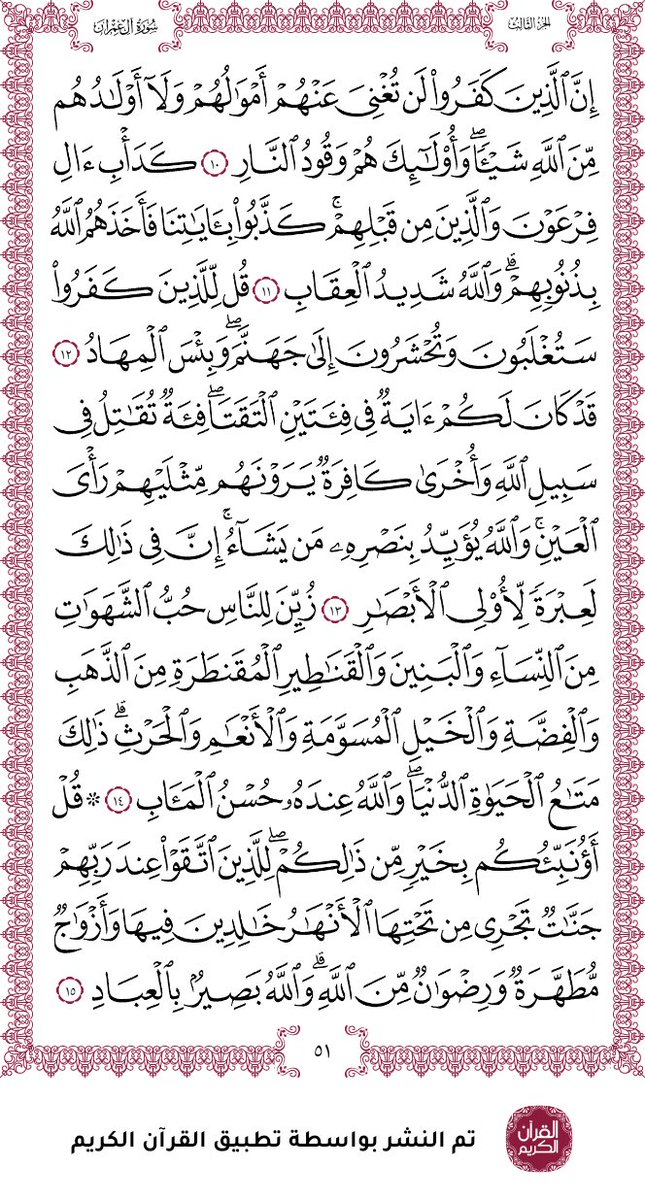 الجزء الثالث
سُورَةُ آلِ عِمْرَانَ
إِنَّ ٱلَّذِينَ كَفَرُوا۟ لَن تُغْنِىَ عَنْهُمْ أَمْوَٰلُهُمْ وَلَآ أَوْلَـٰدُهُم
مِّنَ ٱللَّهِ شَيْـًٔا ۖ وَأُو۟لَـٰٓئِكَ هُمْ وَقُودُ ٱلنَّارِ ١٠ كَدَأْبِ ءَالِ
فِرْعَوْنَ وَٱلَّذِينَ مِن قَبْلِهِمْ ۚ كَذَّبُوا۟ بِـَٔايَـٰتِنَا فَأَخَذَهُمُ ٱللَّهُ
بِذُنُوبِهِمْ ۗ وَٱللَّهُ شَدِيدُ ٱلْعِقَابِ ١١ قُل لِّلَّذِينَ كَفَرُوا۟
سَتُغْلَبُونَ وَتُحْشَرُونَ إِلَىٰ جَهَنَّمَ ۖ وَبِئْسَ ٱلْمِهَادُ ١٢
قَدْ كَانَ لَكُمْ ءَايَةٌ فِى فِئَتَيْنِ ٱلْتَقَتَا ۖ فِئَةٌ تُقَـٰتِلُ فِى
سَبِيلِ ٱللَّهِ وَأُخْرَىٰ كَافِرَةٌ يَرَوْنَهُم مِّثْلَيْهِمْ رَأْىَ
ٱلْعَيْنِ ۚ وَٱللَّهُ يُؤَيِّدُ بِنَصْرِهِۦ مَن يَشَآءُ ۗ إِنَّ فِى ذَٰلِكَ
لَعِبْرَةً لِّأُو۟لِى ٱلْأَبْصَـٰرِ ١٣ زُيِّنَ لِلنَّاسِ حُبُّ ٱلشَّهَوَٰتِ
مِنَ ٱلنِّسَآءِ وَٱلْبَنِينَ وَٱلْقَنَـٰطِيرِ ٱلْمُقَنطَرَةِ مِنَ ٱلذَّهَبِ
وَٱلْفِضَّةِ وَٱلْخَيْلِ ٱلْمُسَوَّمَةِ وَٱلْأَنْعَـٰمِ وَٱلْحَرْثِ ۗ ذَٰلِكَ
مَتَـٰعُ ٱلْحَيَوٰةِ ٱلدُّنْيَا ۖ وَٱللَّهُ عِندَهُۥ حُسْنُ ٱلْمَـَٔابِ ١٤ ۞ قُلْ
أَؤُنَبِّئُكُم بِخَيْرٍ مِّن ذَٰلِكُمْ ۖ لِلَّذِينَ ٱتَّقَوْا۟ عِندَ رَبِّهِمْ
جَنَّـٰتٌ تَجْرِى مِن تَحْتِهَا ٱلْأَنْهَـٰرُ خَـٰلِدِينَ فِيهَا وَأَزْوَٰجٌ
مُّطَهَّرَةٌ وَرِضْوَٰنٌ مِّنَ ٱللَّهِ ۗ وَٱللَّهُ بَصِيرٌۢ بِٱلْعِبَادِ ١٥
٥١
القرآن
الكريم
تم النشر بواسطة تطبيق القرآن الكريم